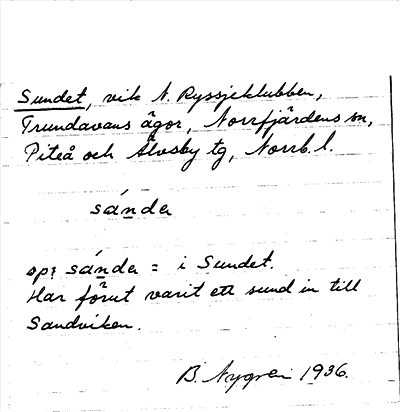 Sundet, vik N. Ryssjeklubben,
Trundavans ägor, Norrfjärdens sn,
Piteå och Älvsby tg, Norrb. l.
sánda
sp: sánda = i Sundet.
Har förut varit ett sund in till
Sandviken.
B. Nygren 1936.